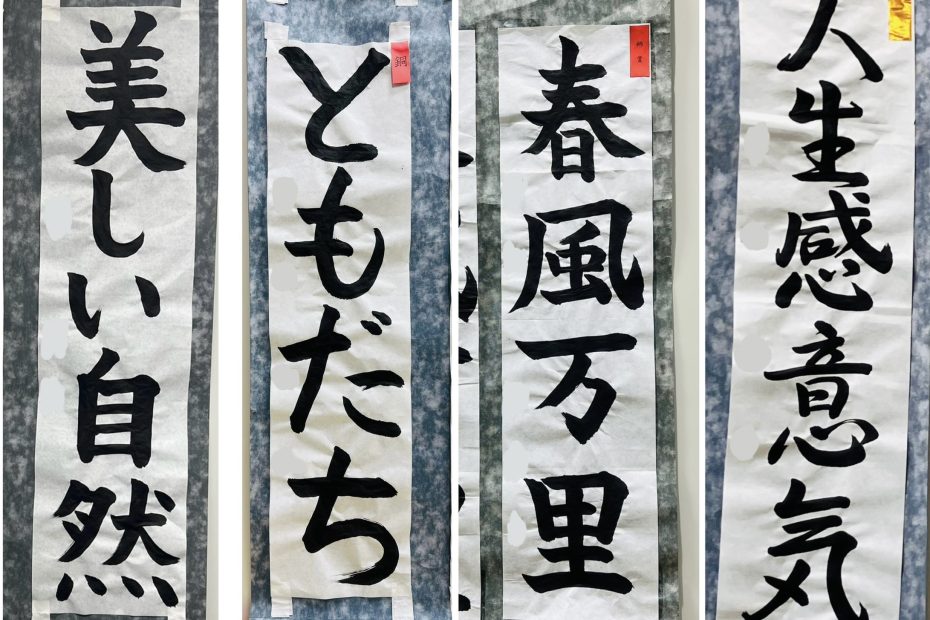 美しい自然
ともだち
春風万里
人生感意気